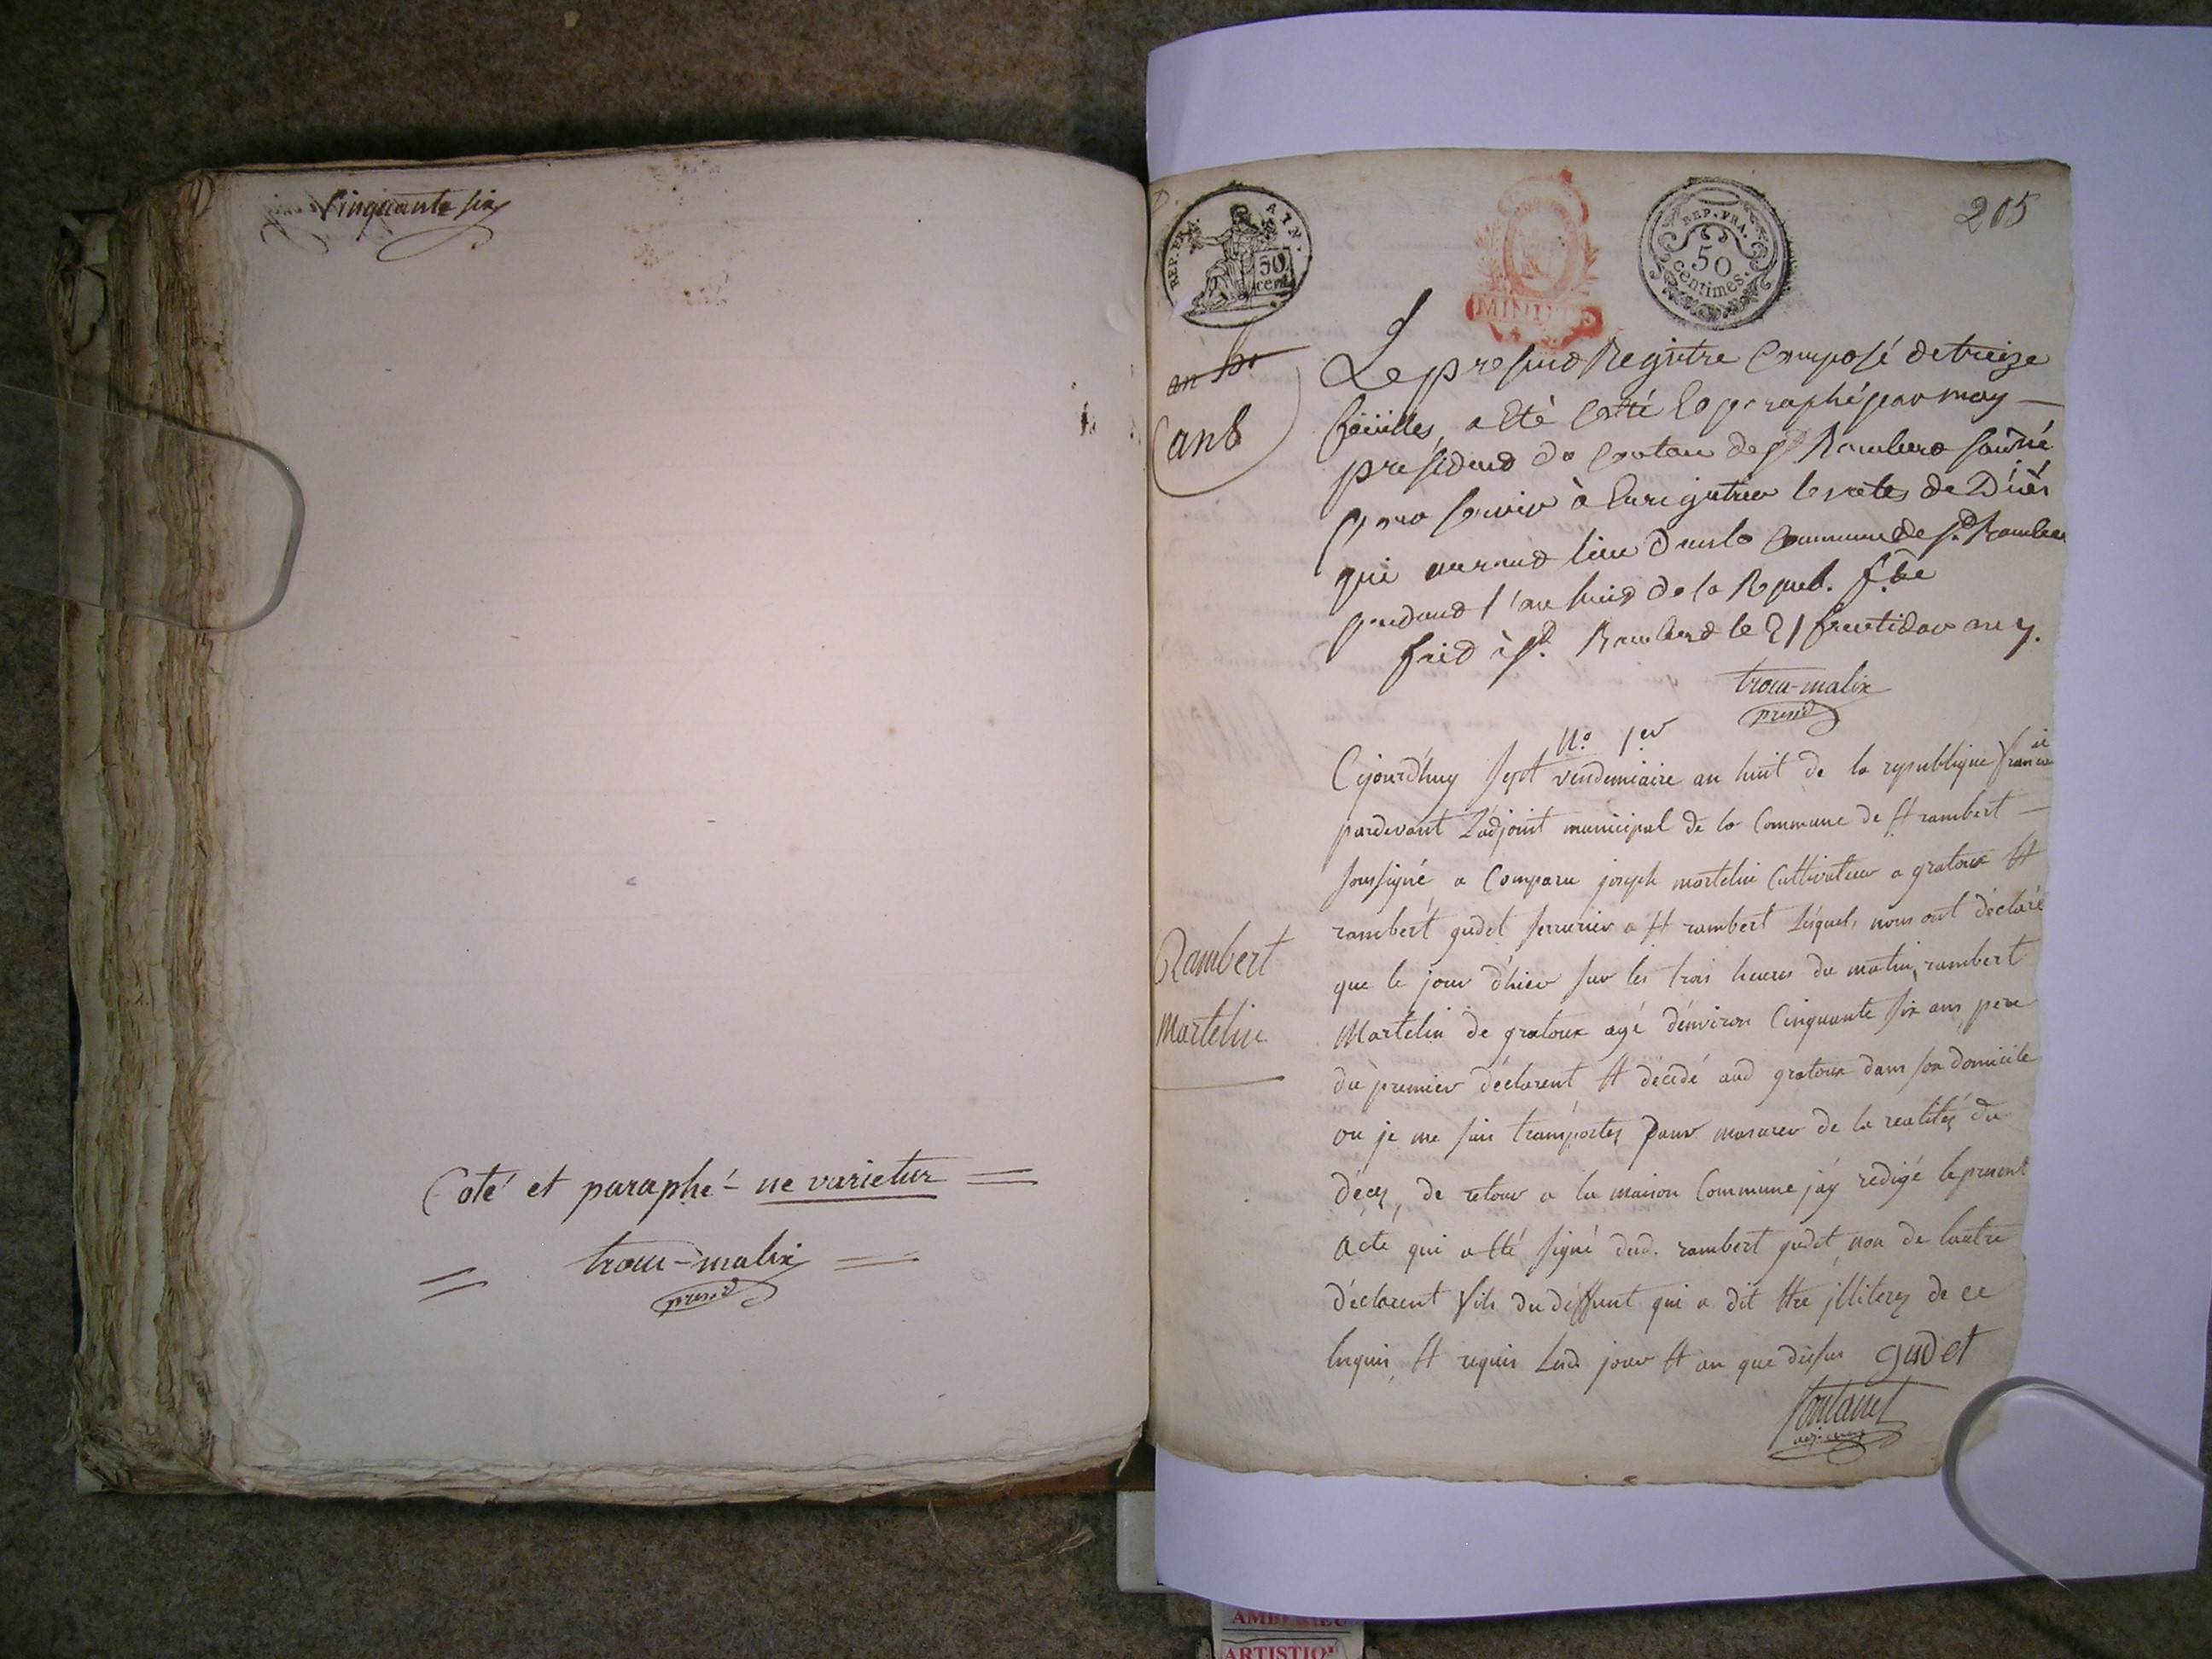 Cinquante six
Coté et paraphé - ne varietur =
= trocu-malix =
presid
205
REP. FRA.
50
cent.
MINUTE
REP. FRA.
50
centimes.
an
an 8
Le present Registre Composé de treize
feüilles, a Eté Cotté & paraphé par moy —
president du Canton de St Rambert soussné
pour servir à Enregistrer les actes de Décés
qui auront lieu dans la Commune de St. Rambert
pendant l'an huit de la Repub. fse
fait à St. Rambert le 21 fructidor an 7.
trocu-malix
presid
N.o 1er
Cejourd'huy sept vendemiaire an huit de la republique francaise
pardevant L'adjoint municipal de la Commune de St rambert —
soussigné a Comparu joseph martelin Cultivateur a gratoux Et
rambert gudet serrurier a St rambert Lesquels nous ont déclaré
que le jour d'hier sur les trois heures du matin, rambert
Martelin de gratoux agé d'environ Cinquante six ans, pere
du premier déclarent Et décédé aud gratoux dans son domicile
ou je me suis transportez pour masurer de la realitez du
décez, de retour a la maison Commune j'ay redigé le present
Acte qui a Eté signé dud. rambert gudet non de lautre
déclarent fils du déffunt qui a dit Etre illiterez de ce
Enquis, Et requis Lesd. jour Et an que dessus gudet
Rambert
Martelin
fontanel
adj. mal
AMBERIEU
ARTISTIQU